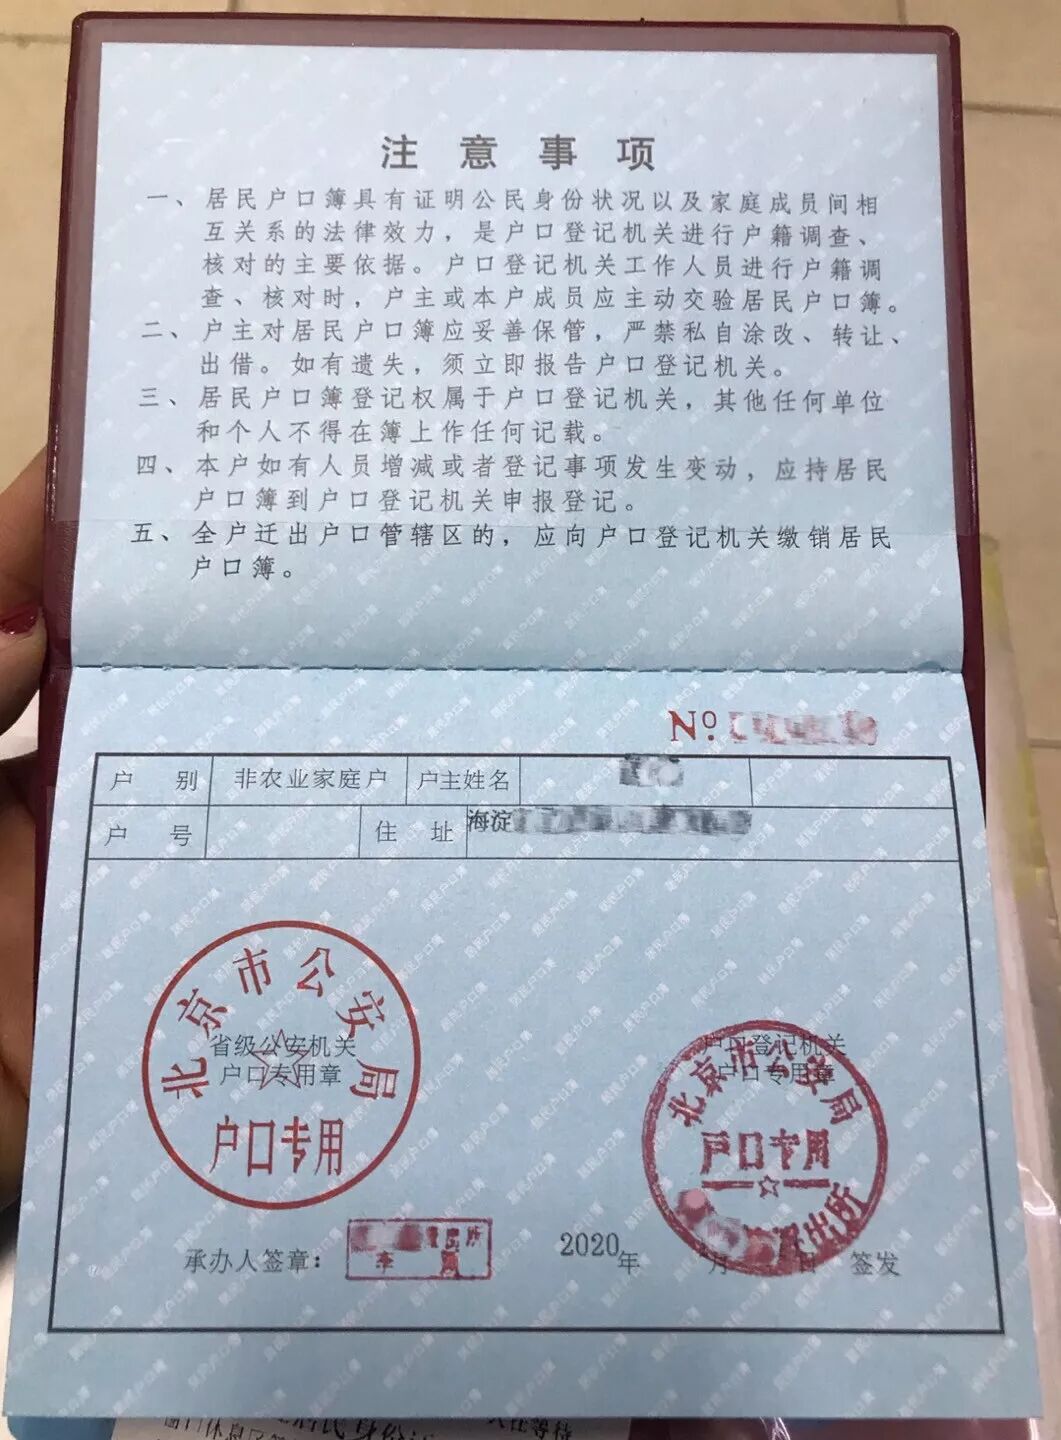 注意事项
一、居民户口簿具有证明公民身份状况以及家庭成员间相
互关系的法律效力，是户口登记机关进行户籍调查、
核对的主要依据。户口登记机关工作人员进行户籍调
查、核对时，户主或本户成员应主动交验居民户口簿。
二、户主对居民户口簿应妥善保管，严禁私自涂改、转让、
出借。如有遗失，须立即报告户口登记机关。
三、居民户口簿登记权属于户口登记机关，其他任何单位
和个人不得在簿上作任何记载。
四、本户如有人员增减或者登记事项发生变动，应持居民
户口簿到户口登记机关申报登记。
五、全户迁出户口管辖区的，应向户口登记机关缴销居民
户口簿。
No.
户 别 非农业家庭户 户主姓名
户 号 住 址 海淀
北京市公安局
省级公安机关
户口专用章
户口专用
户口登记机关
户口专用章
北京市公安局
户口专用
派出所
承办人签章： 2020年 月 日 签发